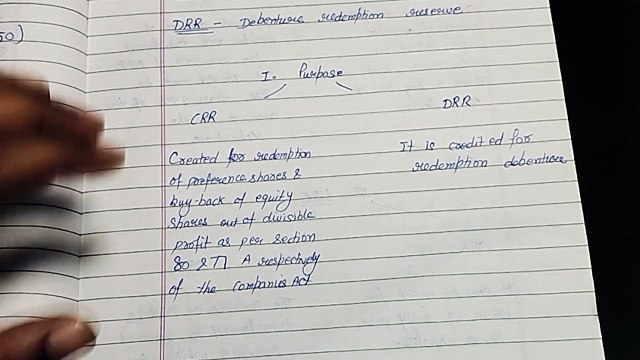 50)
DRR - Debenture redemption reserve
I. Purpose
CRR
DRR
Created for redemption
of preference shares &
buy-back of equity
shares out of divisible
profit as peer section
80 & 77 A respectively
of the Companies Act
It is credited for
redemption debenture